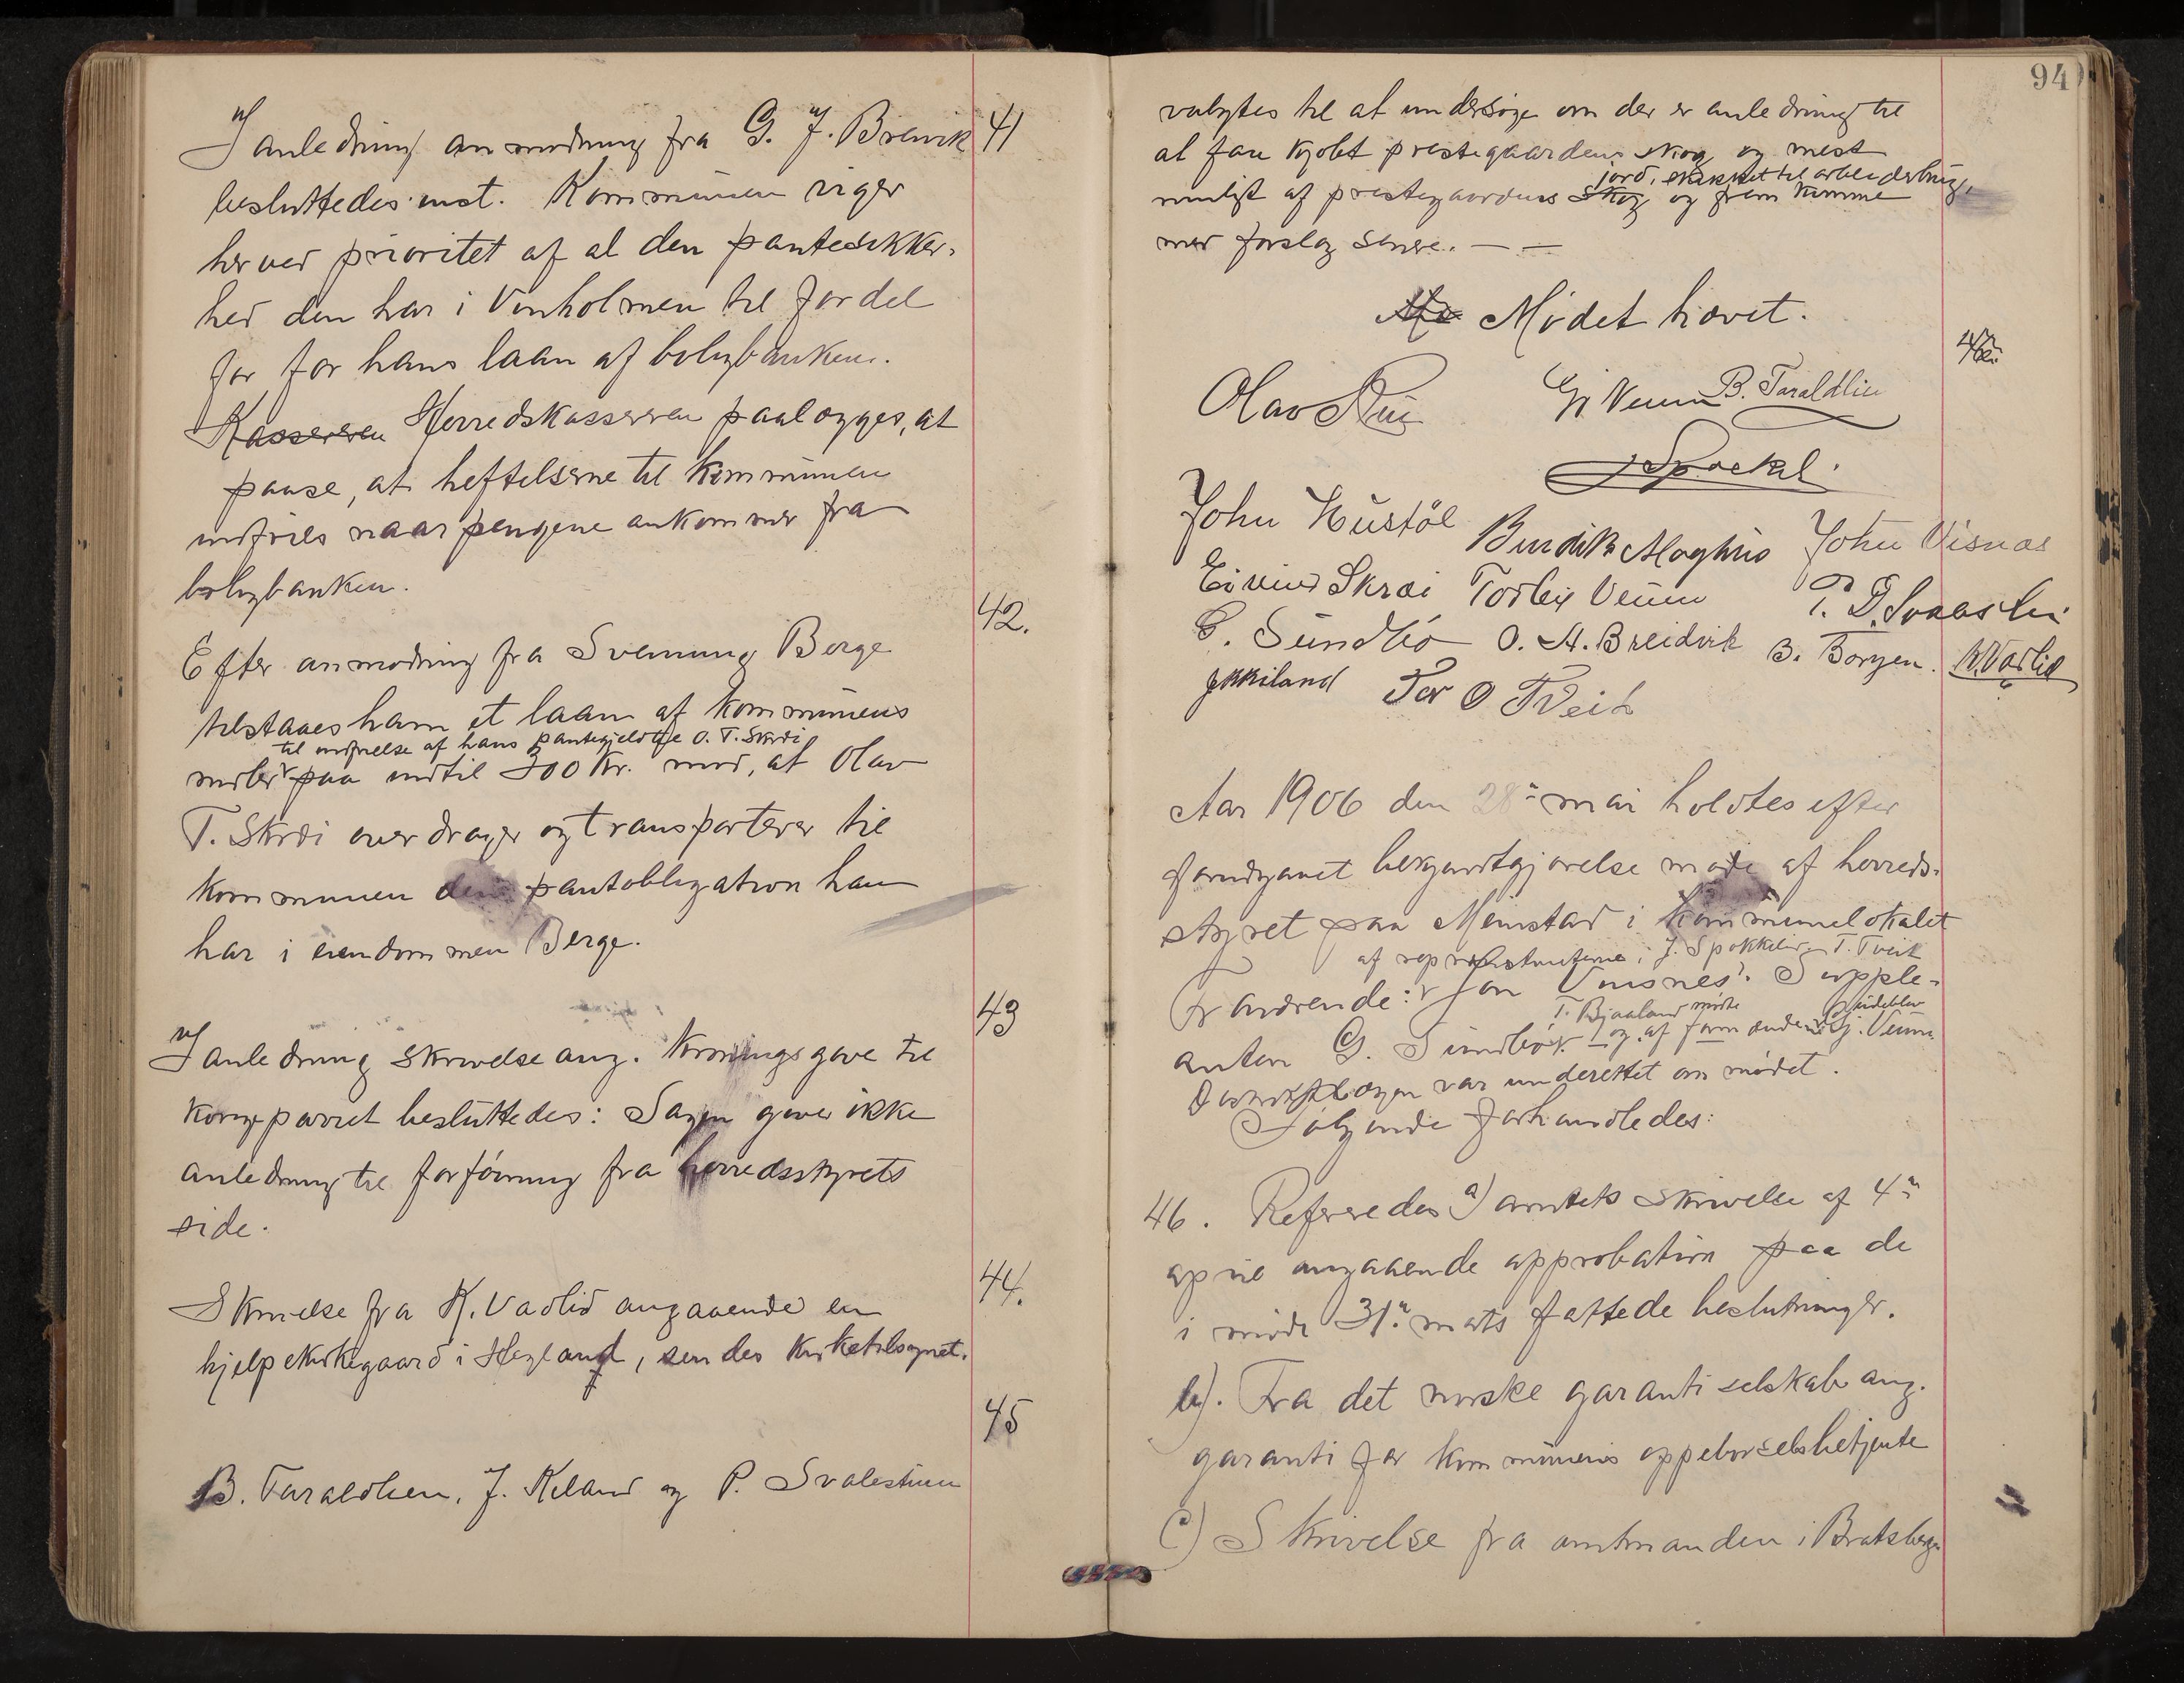 I anledning anmodning fra G. J. Breivik 41
besluttedes enst. Kommunen viger
herved prioritet af al den pantesikker-
hed den har i Vinholmen til fordel
for for hans laan af boligbanken.
Kassereren Herredskassereren paalægges, at
paase, at heftelserne til kommunen
indfries naar pengene ankommer fra
boligbanken.
42.
Efter anmodning fra Svenung Berge
tilstaaes ham et laan af kommunens
til indfrielse af hans pantegjeld til O. T. Skræi
midler paa indtil 300 Kr. mod, at Olav
T. Skræi overdrager og transporterer til
kommunen den pantobligation han
har i eiendommen Berge.
43
I anledning skrivelse ang. Kroningsgave til
kongeparret besluttedes: Sagen giver ikke
anledning til forføining fra herredsstyrets
side.
44.
Skrivelse fra K. Vaslid angaaende en
hjelpekirkegaard i Høgland, sendes kirketilsynet.
45
B. Taraldlien, J. Kiland og P. Svalestuen
94
valgtes til at undersøge om der er anledning til
at faa kjøbt prestegaardens skog og mest
jord, skikket til arbeiderbrug,
muligt af prestegaardens skog og fremkomme
med forslag senere. — —
Mø Mødet hævet.
Olav Rui Gj. Venum B. Taraldlien
J Spockel.
John Hustöl Burdik Moghus John Visnas
Eivind Skræi Torleiv Venum T. D. Svaastu
G. Sundbö O. H. Breidvik B. Borgen. K. Vaslid
J Kiland Tor O Tveit
Aar 1906 den 28de mai holdtes efter
forudgaaet bekjendtgjørelse møde af herreds-
styret paa Meinstad i kommunelokalet
af repræsentanterne: J. Spokkelie, T. Tveit
Fraværende: Jon Vmsnes. Supple-
T. Bjaaland mødte Gaideblev
anten G. Sundbö og af formænden Gj. Venum
Distriktslægen var underrettet om mødet.
Følgende forhandledes:
46. Refereredes a) amtets skrivelse af 4de
april angaaende approbation paa de
i møde 31te marts fattede beslutninger.
b). Fra det norske garantiselskab ang.
garanti for kommunens oppebørselsbetjente
c) Skrivelse fra amtmanden i Bratsberg